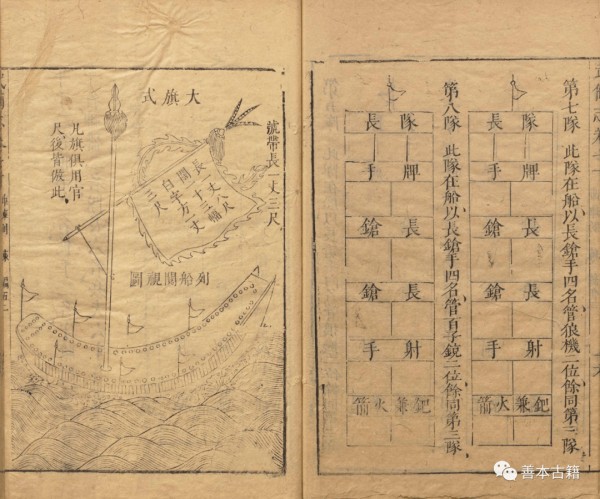 第七隊 此隊在船以長鎗手四名管狼機一位餘同第三隊
隊長
牌手
長鎗
長鎗
射手
鈀兼火箭
第八隊 此隊在船以長鎗手四名管百子銃二位餘同第三隊
隊長
牌手
長鎗
長鎗
射手
鈀兼火箭
號帶長一丈三尺
大旗式
長丈八尺
闊十二幅
白字方丈
三尺
凡旗俱用官
尺後皆倣此
列船閱視圖
善本古籍